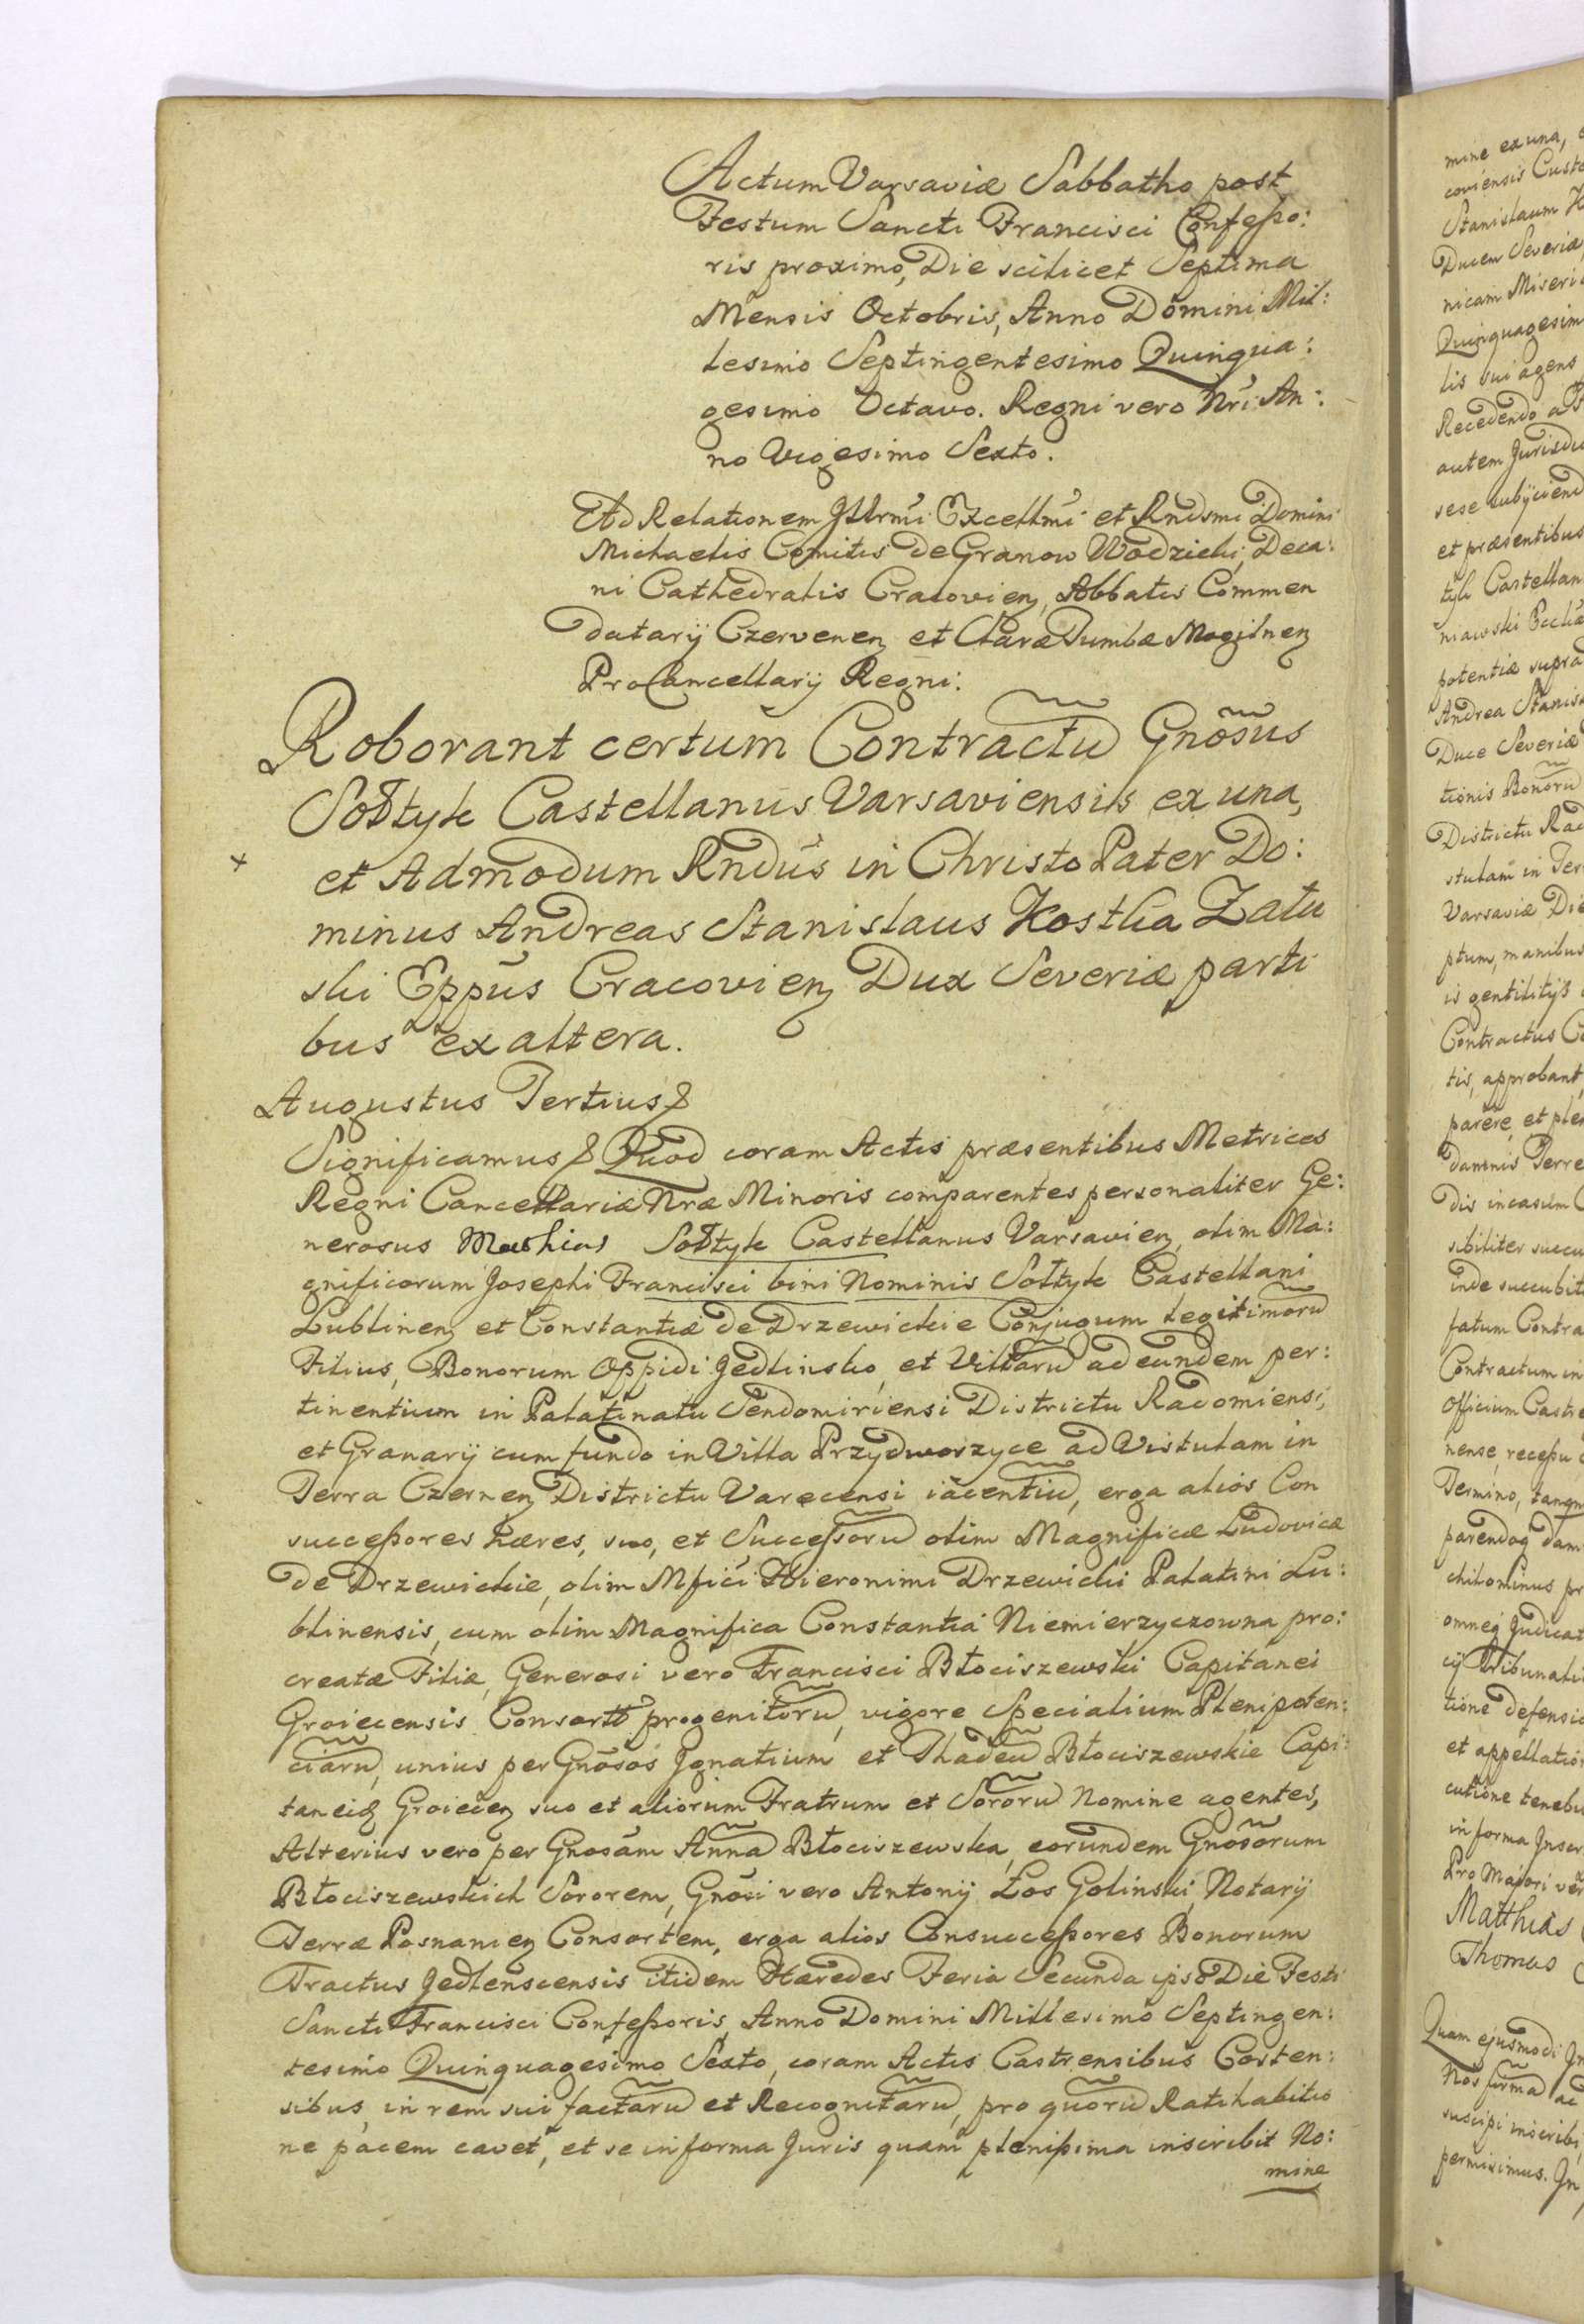 Actum Varsaviæ Sabbatho post
Festum Sancti Francisci Confeßo:
ris proximo, Die scilicet Septima
Mensis Octobris, Anno Domini Mil:
lesimo Septingentesimo Quinqua:
gesimo Octavo. Regni vero Nri An:
no Vigesimo Sexto.
Ad Relationem Jllrmi Excellmi et Rndsmi Domini
Michaelis Comitis de Granow Wodzicki, Deca:
ni Cathedralis Cracovien, Abbatis Commen
datarÿ Czervenen et Claræ Tumbæ Mogilnen
ProCancellarÿ Regni:
Roborant certum Contractū Gnõsus
Sołtyk Castellanus Varsaviensis ex una,
+ et Admodum Rndūs in Christo Pater Do:
minus Andreas Stanislaus Kostka Zału
ski Eppūs Cracovien Dux Severiæ parti
bus ex altera.
Augustus Tertius &
Significamus & Quod coram Actis præsentibus Metrices
Regni Cancellariæ Nræ Minoris comparentes personaliter Ge:
nerosus Mathias Sołtyk Castellanus Varsavien, olim Ma:
gnificorum Josephi Francisci bini Nominis Sołtyk Castellani
Lublinen et Constantiæ de Drzewickie Conjugum legitimorū
Filius, Bonorum Oppidi Jedlinsko, et Villarū ad eundem per:
tinentium in Palatinatu Sendomiriensi Districtu Radomiensi,
et Granarÿ cum fundo in Villa Przydworzyce ad Vistulam in
Terra Czernen Districtu Varecensi iacentiū, erga alios Con
succeßores hæres, suo, et Successorū olim Magnificæ Ludovicæ
de Drzewickie, olim Mfici Hieronimi Drzewicki Palatini Lu:
blinensis, cum olim Magnifica Constantia Niemierzyczowna pro:
creatæ Filiæ, Generosi vero Francisci Błociszewski Capitanei
Groiecensis Consortis progenitorū, vigore Specialium Plenipoten:
ciarū, unius per Gnõsos Jgnatium et Thadeū Błociszewskie Capi:
taneid Groiecen suo et aliorum Fratrum et Sororū Nomine agentes,
Alterius vero per Gnosam Annā Błociszewska, eorundem Gnõsorum
Błociszewskich Sororem, Gnõsi vero Antonÿ Łos Golinski, Notarÿ
Terræ Posnanien Consortem, erga alios Consucceßores Bonorum
Tractus Jedlenscensis itidem Hæredes Feria Secunda ipso Die Festi
Sancti Francisci Confeßoris, Anno Domini Millesimo Septingen:
tesimo Quinquagesimo Sexto, coram Actis Castrensibus Costen:
sibus, in rem sui factarū et Recognitarū, pro quorū Ratihabitio
ne pacem cavet, et se in forma Juris quam plenißima inscribit No:
mine
mine ex una,
coviensis Custo
Stanislaum
Ducem Severiæ
nicam Miseri
Quinquagesim
lis sui agens
Recedendo a
autem Jurisdic
sese subÿciend
et præsentibus
tyk Castellan
niawski
potentiæ supra
Andrea Stanis
Duce Severiæ
tionis Bonorū
Districtu Rad
stulam in Ter
Varsaviæ Die
ptum, manibus
is gentilitÿs
Contractus
tis, approbant
parere, et ple
damnis Terre
dis in casum
sibiliter succu
inde succubit
fatum Contra
Contractum in
Officium Castre
nense, receßu
Termino, tanqu
parendoq dam
ominus pr
omneq Judicat
cÿ Tribunali
tione defensi
et appellatio
cutione tenebu
in forma Jnscr
Pro Majori ver
Matthias
Thomas
Quam ejusmodi Jn
Nos firma ac
suscipi inscribi
permisimus. Jn